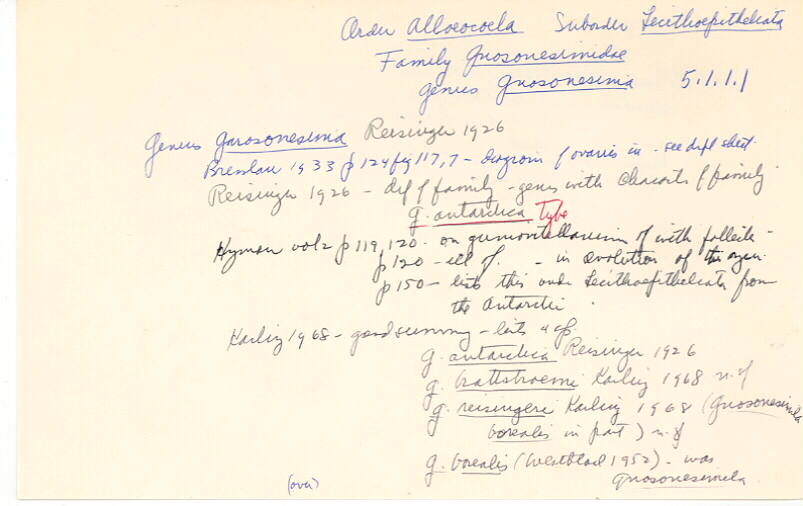 Order Alloeocoela Suborder Lecithoepitheliata
Family Gnosonesimidae
genus Gnosonesima 5.1.1.1
Genus Gnosonesima Reisinger 1926
Bresslau 1933 p 124 fig 117,7 - diagram of ovaries in - see dupl sheet.
Reisinger 1926 - def of family - genus with characters of family
G. antarctica Type
Hyman vol 2 p 119, 120 - on germovitellarium of with follicle -
p 120 - ill of. - in evolution of this organ.
p 150 - lists this under Lecithoepitheliata from
the Antarctic.
Karling 1968 - good summary - lists 4 sp.
G. antarctica Reisinger 1926
G. brattstroemi Karling 1968 n. sp
G. reisingeri Karling 1968 (Gnosonesimela
borealis in part) n. sp
G. borealis (Westblad 1952) - was
Gnosonesimela.
(over)